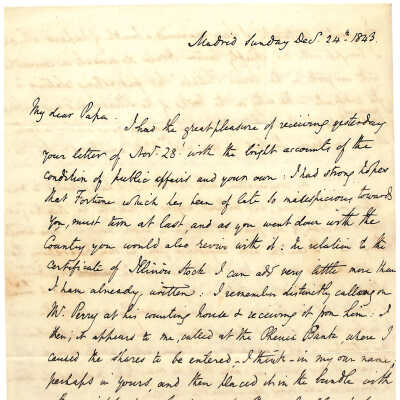 Madrid Sunday Decr. 24th. 1843.
My dear Papa.
I had the great pleasure of receiving yesterday
your letter of Novr. 28' with the bright accounts of the
condition of public affairs and your own: I had strong hopes
that Fortune which has been of late so malespicious towards
you, must turn at last, and as you went down with the
Country you would also revive with it: In relation to the
certificate of Illinois stock I can add very little more than
I have already written: I remember distinctly calling on
Mr. Perry at his counting house & receiving it from him: I
then, it appears to me, called at the Phenix Bank, where I
caused the shares to be entered - I think - in my own name,
perhaps in yours, and then placed it in the bundle with